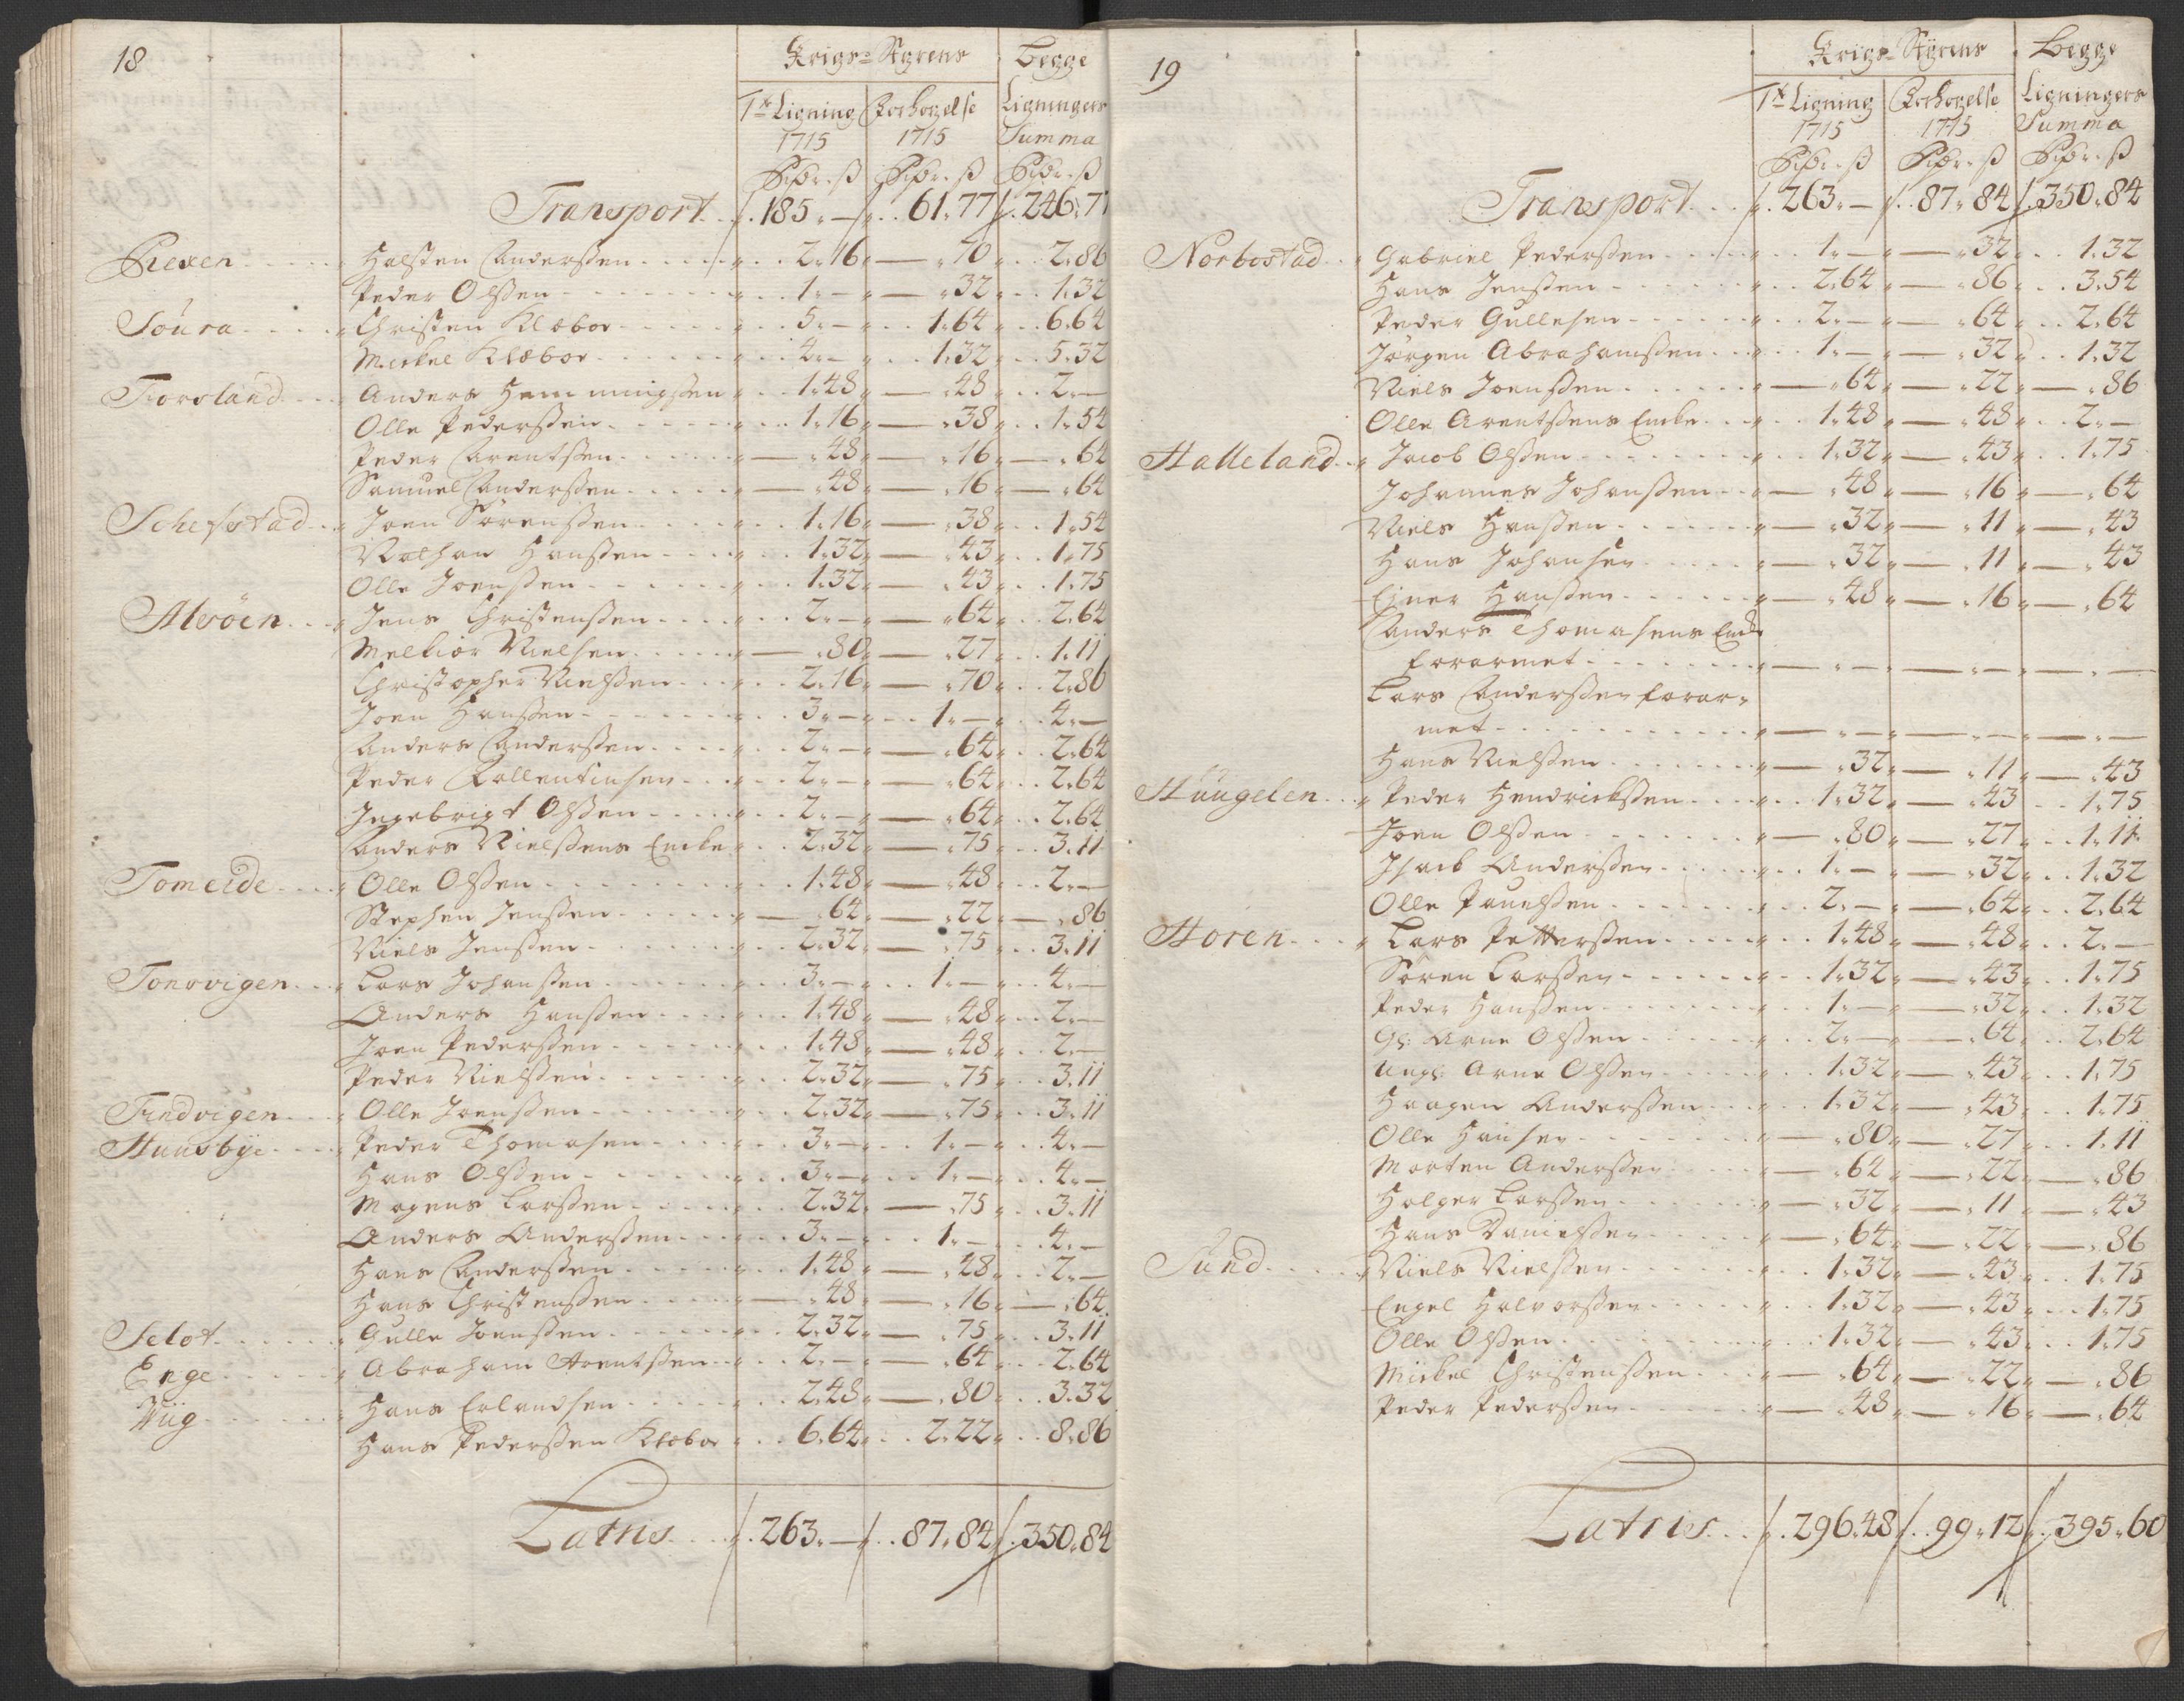 18
Krigs-Styrens Begge
1te Ligning Forhøyelse Ligningers
1715 1715 Summa
Rixdr. ß Rixdr. ß Rixdr. ß
Transport 185.— 61.77 246.77
Rexen Halsten Anderssen 2.16 — .70 2.86
Peder Olssen 1.— — .32 1.32
Soura Christen Klæboe 5.— 1.64 6.64
Mickel Klæboe 4.— 1.32 5.32
Fiorsland Anders Hemmingssen 1.48 — .48 2.—
Olle Pederssen 1.16 — .38 1.54
Peder Arentssen — .48 — .16 — .64
Samuel Anderssen — .48 — .16 — .64
Schefstad Joen Sørenssen 1.16 — .38 1.54
Nathan Hanssen 1.32 — .43 1.75
Olle Joenssen 1.32 — .43 1.75
Alsøen Jens Christenssen 2.— — .64 2.64
Melkior Nielsen — .80 — .27 1.11
Christopher Nielssen 2.16 — .70 2.86
Joen Hanssen 3.— 1.— 4.—
Anders Anderssen 2.— — .64 2.64
Peder Follentinsen 2.— — .64 2.64
Ingebrigt Olssen 2.— — .64 2.64
Anders Nielssens Encke 2.32 — .75 3.11
Tomeide Olle Olssen 1.48 — .48 2.—
Stephen Jenssen — .64 — .22 — .86
Niels Jenssen 2.32 — .75 3.11
Tonvigen Lars Johanssen 3.— 1.— 4.—
Anders Hanssen 1.48 — .48 2.—
Joen Pederssen 1.48 — .48 2.—
Peder Nielssen 2.32 — .75 3.11
Findvigen Olle Joenssen 2.32 — .75 3.11
Huusbye Peder Thomasen 3.— 1.— 4.—
Hans Olssen 3.— 1.— 4.—
Mogens Larssen 2.32 — .75 3.11
Anders Anderssen 3.— 1.— 4.—
Hans Anderssen 1.48 — .48 2.—
Hans Christenssen — .48 — .16 — .64
Selot Gulle Joenssen 2.32 — .75 3.11
Enge Abraham Arentssen 2.— — .64 2.64
Viig Hans Erlandsen 2.48 — .80 3.32
Hans Pederssen Klæboe 6.64 2.22 8.86
Latris 263.— 87.84 350.84
19
Krigs-Styrens Begge
1te Ligning Forhøyelse Ligningers
1715 1715 Summa
Rixdr. ß Rixdr. ß Rixdr. ß
Transport 263.— 87.84 350.84
Norbostad Gabriel Pederssen 1.— — .32 1.32
Hans Jenssen 2.64 — .86 3.54
Peder Gullesen 2.— — .64 2.64
Jörgen Abrahamssen 1.— — .32 1.32
Niels Joenssen — .64 — .22 — .86
Olle Arentssens Encke 1.48 — .48 2.—
Halleland Jacob Olssen 1.32 — .43 1.75
Johannes Johanssen — .48 — .16 — .64
Niels Hanssen — .32 — .11 — .43
Hans Johansen — .32 — .11 — .43
Ejner Hanssen — .48 — .16 — .64
Anders Thomasens Encke
forarmet — . — — . — — . —
Lars Anderssen forar-
met — . — — . — — . —
Hans Nielssen — .32 — .11 — .43
Huugelen Peder Hendrickssen 1.32 — .43 1.75
Joen Olssen — .80 — .27 1.11
Isach Anderssen 1.— — .32 1.32
Olle Paulssen 2.— — .64 2.64
Horen Lars Petterssen 1.48 — .48 2.—
Søren Larssen 1.32 — .43 1.75
Peder Hanssen 1.— — .32 1.32
Gl: Arne Olssen 2.— — .64 2.64
Ungl: Arne Olssen 1.32 — .43 1.75
Haagen Anderssen 1.32 — .43 1.75
Olle Hansen — .80 — .27 1.11
Morten Anderssen — .64 — .22 — .86
Holger Larssen — .32 — .11 — .43
Hans Danielssen — .64 — .22 — .86
Sund Niels Nielssen 1.32 — .43 1.75
Engel Halvorssen 1.32 — .43 1.75
Olle Olssen 1.32 — .43 1.75
Mickel Christenssen — .64 — .22 — .86
Peder Pederssen — .48 — .16 — .64
Latries 296.48 99.12 395.60